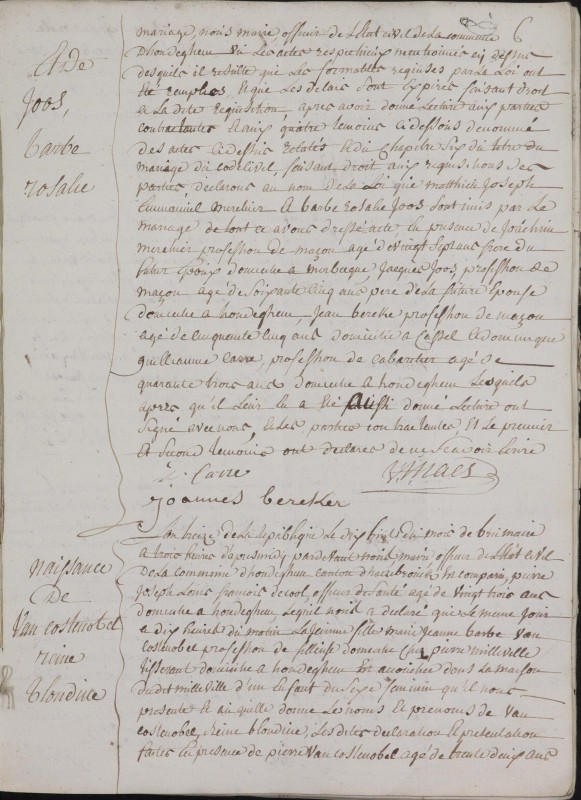 6
Et De
Joos,
barbe
rosalie
mariage, nous maire, officier de l'Etat civil de la commune
d'hondeghem vu les actes respectieux mentionnés ey desus
desquels il resulte que les formalites requises par la Loi ont
été remplies, et que les delais sont expirés faisant droit
a la dite requisition, après avoir donné Lecture aux parties
contractantes et aux quatre temoins ci dessous denommé
des actes ci dessus relatés et du chapitre six du titre du
mariage du code civil, faisant droit aux requisitions des
parties, declarons au nom de la Loi que matthieu Joseph
Emmanuel merchier et barbe rosalie Joos sont unis par le
mariage de tout ce avons dressé acte, en presence de Joachim
merchier profession de maçon agé de vingt sept ans frere du
futur Epoux domicilié a morbecque Jacques Joos profession de
maçon agé de soixante cinq ans pere de la future Epouse
domicilié a hondeghem, Jean bereker profession de maçon
agé de cinquante cinq ans domicilié a Cassel et dominique
guilliaume carre, profession de cabaretier agé de
quarante trois ans domicilié a hondeghem Lesquels
après qu'il leur en a été aussi donné Lecture ont
signé avec nous, et les parties contractantes et le premier
et second temoins ont declarés de ne scavoir écrire
D: Carre
V: Maes
Joannes bereker
naissance
De
Van costenobel
reine
blondine
L'an treize de la republique le dix huit du mois de brumaire
a trois heures d'après midy pardevant nous maire officier de l'Etat civil
De la commune d'hondeghem canton d'hazebrouck Est comparu, pierre
Joseph Louis francois decool, officier de santé agé de vingt trois ans
domicilié a hondeghem, Lequel nous a declaré que le meme jour
a dix heures du matin la jeunne fille marie jeanne barbe Van
costenobel profession de fileuse domicilié chez pierre milleville
tisserant domicilié a hondeghem Est accouchée dans la maison
dudit milleville d'un Enfant du sexe feminin qu'il nous
presente et auquelle donne les noms et prenoms de Van
costenobel, reine blondine, Les dites declaration et presentation
faites en presence de pierre Van costenobel agé de trente deux ans